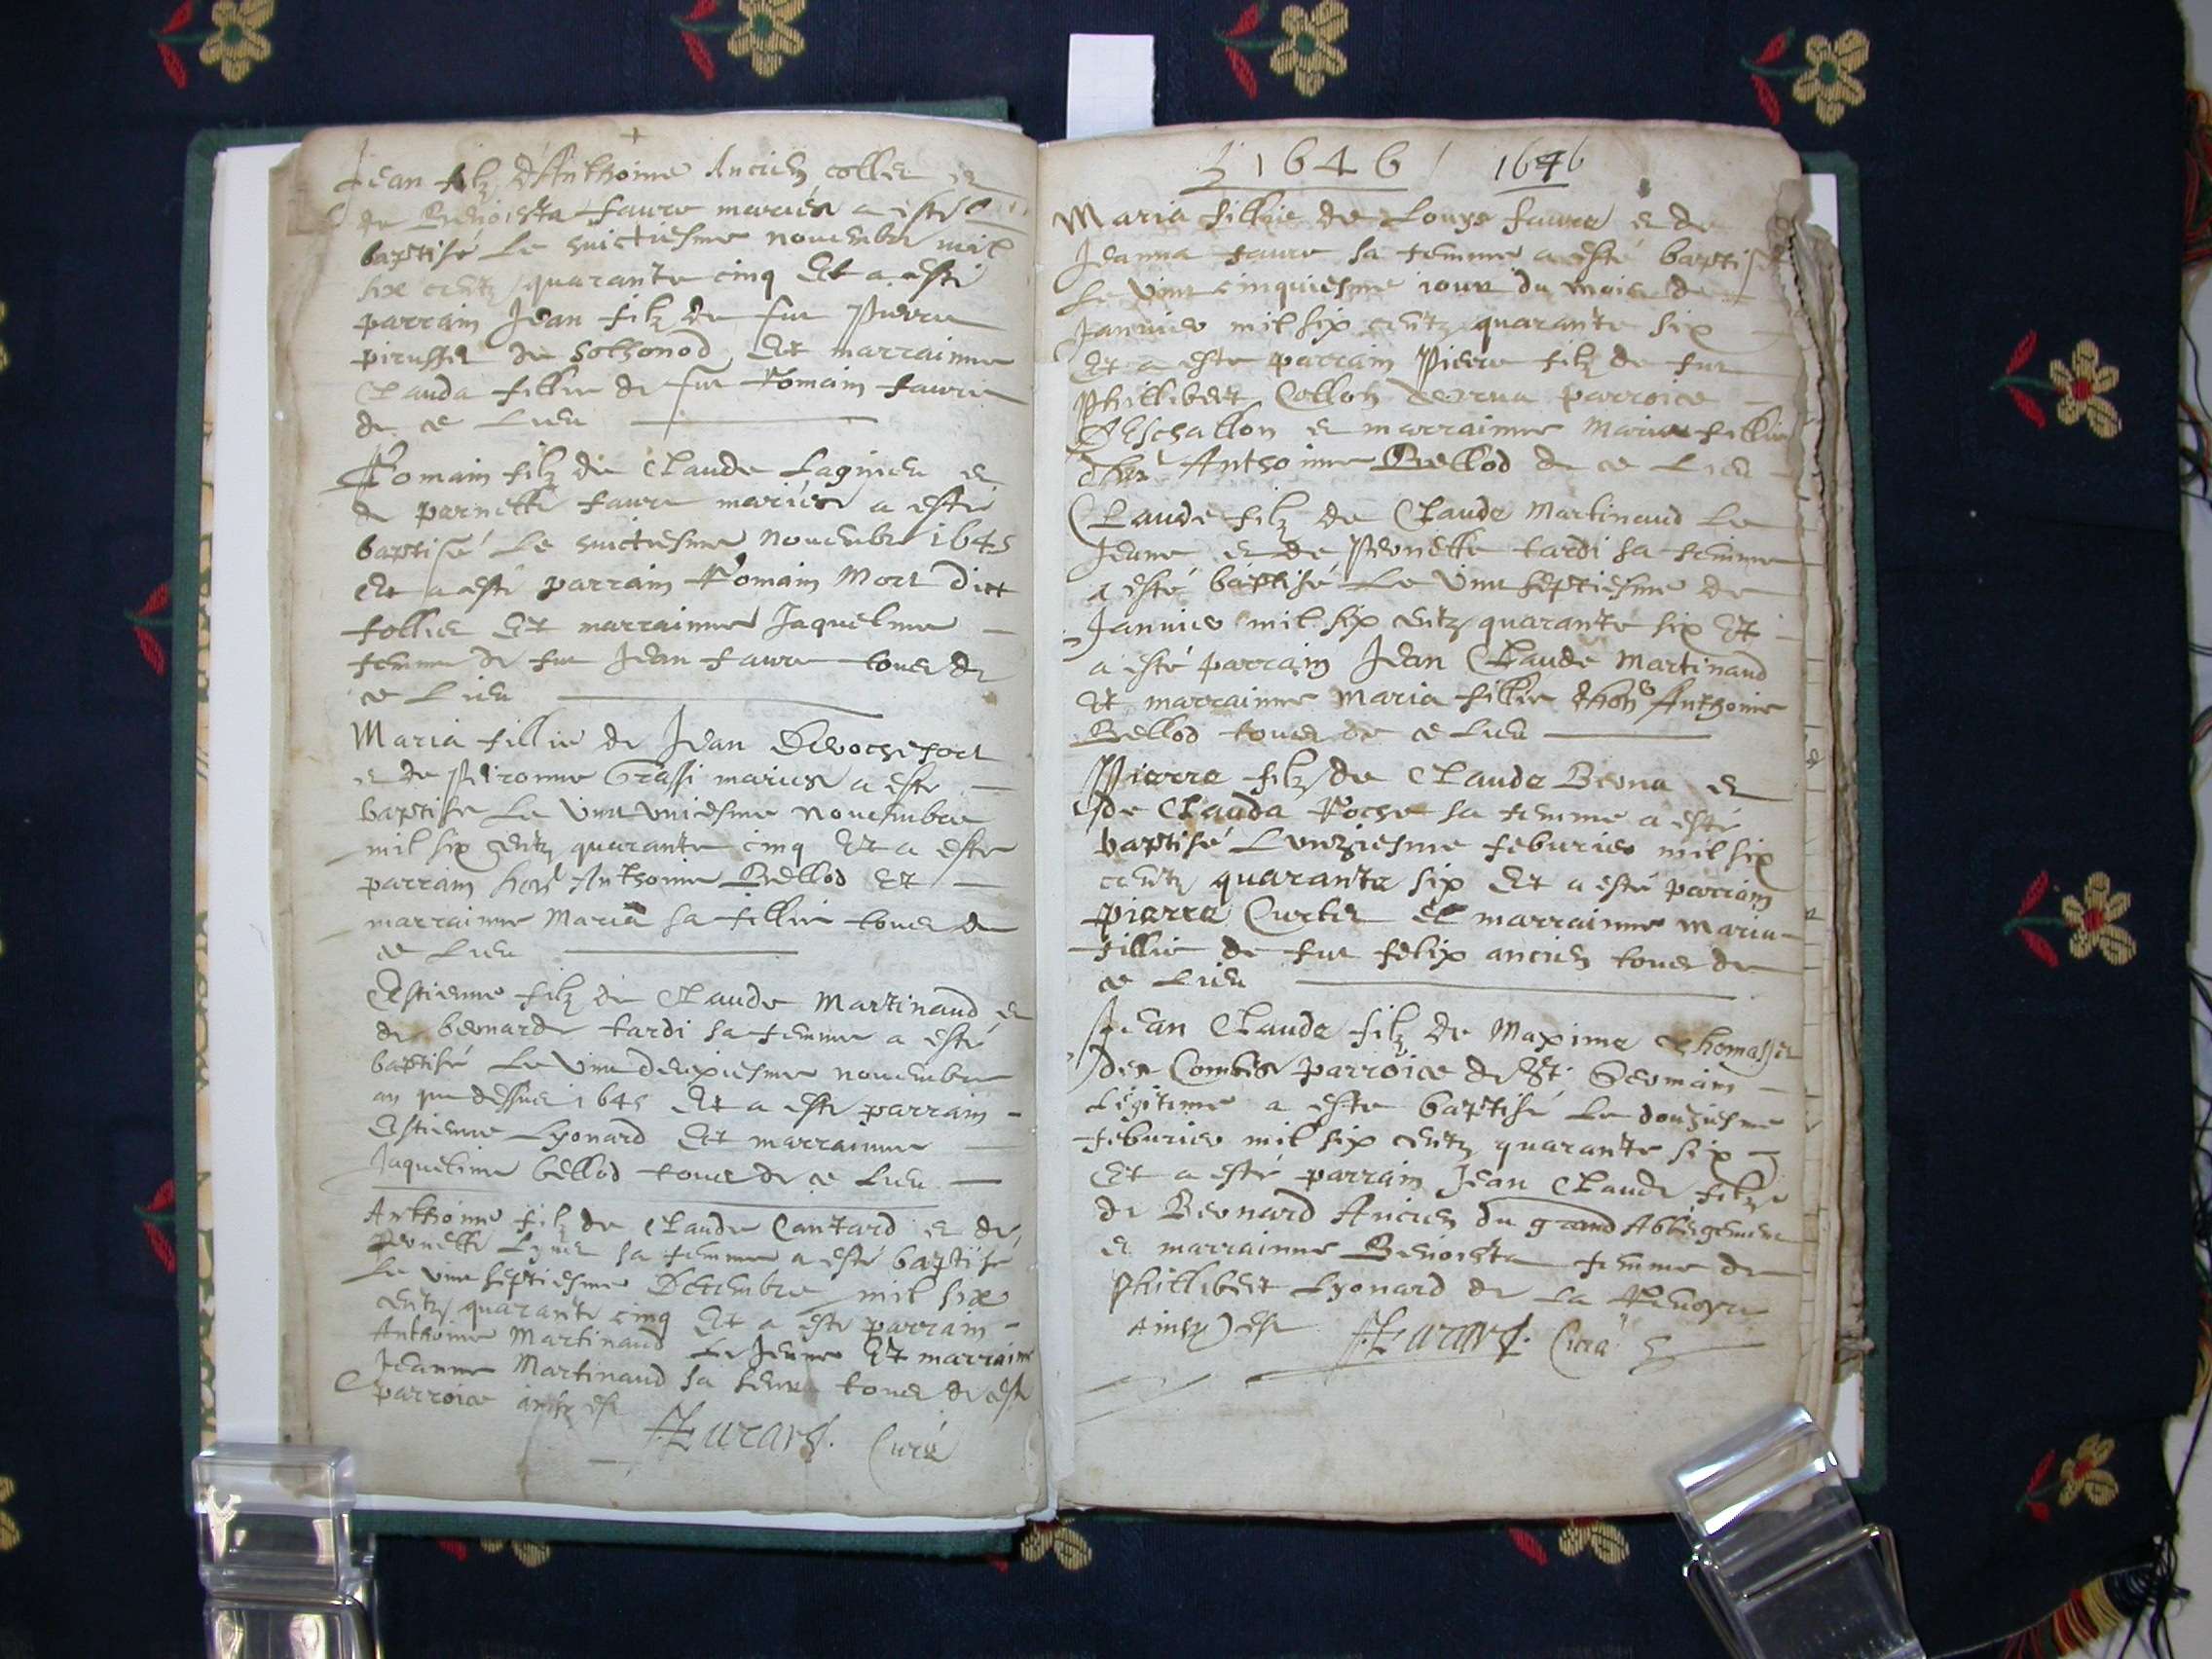 Jean filz d'Anthoine Ancien collet et
de Benoista Faure mariés a esté
baptisé le huictiesme novembre mil
six centz quarante cinq Et a esté
parrain Jean filz de fut Pierre
pirusset de Sothonod, Et marrainne
Clauda fillie de fut Romain Faure
de ce Lieu
Romain filz de Claude Lagnieu et
de parnette Faure mariés a esté
baptisé Le huictiesme Novembre 1645
Et a esté parrain Romain Mort dict
follier Et marrainne Jaquelme
femme de fut Jean Faure tous de
ce Lieu
Maria fillie de Jean Derochefort
et de Pironne Grassi mariés a este
baptise Le vint uniesme novembre
mil six centz quarante cinq Et a este
parrain hon Anthoine Bellod Et
marrainne Maria sa fillie tous de
ce Lieu
Estienne filz de Claude Martinaud et
de bernarde tardi sa femme a esté
baptisé Le vint deuxiesme novembre
an que dessus 1645 Et a este parrain
Estienne Lyonard Et marrainne
Jaqueline bellod tous de ce Lieu
Anthoine filz de Claude Cantard et de
pernette sa femme a esté baptisé
Le vint septiesme Decembre mil six
centz quarante cinq Et a este parrain
Anthoine Martinaud le Jeune Et marraine
Jeanne Martinaud sa seur tous de ceste
parroice ainsy est
Curé
1646 1646
Maria fillie de Louys Faure et de
Jeanna Faure sa femme a esté baptisé
Le vint cinquiesme iour du mois de
Janvier mil six centz quarante six
Et a este parrain Pierre filz de fut
Phillibert Collon parroice
D'Eschallon et marrainne Maria fillie
d'hon Anthoinne Bellod de ce Lieu
Claude filz de Claude Martinaud Le
Jeune et de Pernette tardi sa femme
a esté baptisé Le vint septiesme de
Janvier mil six centz quarante six Et
a esté parrain Jean Claude Martinaud
Et marrainne Maria fillie d'hon Anthoine
Bellod tous de ce Lieu
Pierre filz de Claude Berna et
de Clauda Roche sa femme a esté
baptisé L'unziesme feburier mil six
centz quarante six Et a esté parrain
pierre Curtet et marrainne Maria
fillie de fut felix ancien tous de
ce Lieu
Jean Claude filz de Maxime thomasset
des Combes parroice de St Germain
Legitime a este baptisé Le douziesme
feburier mil six centz quarante six
Et a esté parrain Jean Claude filz
de Bernard Ancien du grand Abbergement
et marrainne Benoista femme de
Phillibert Lyonard de La
ainsy est Curé